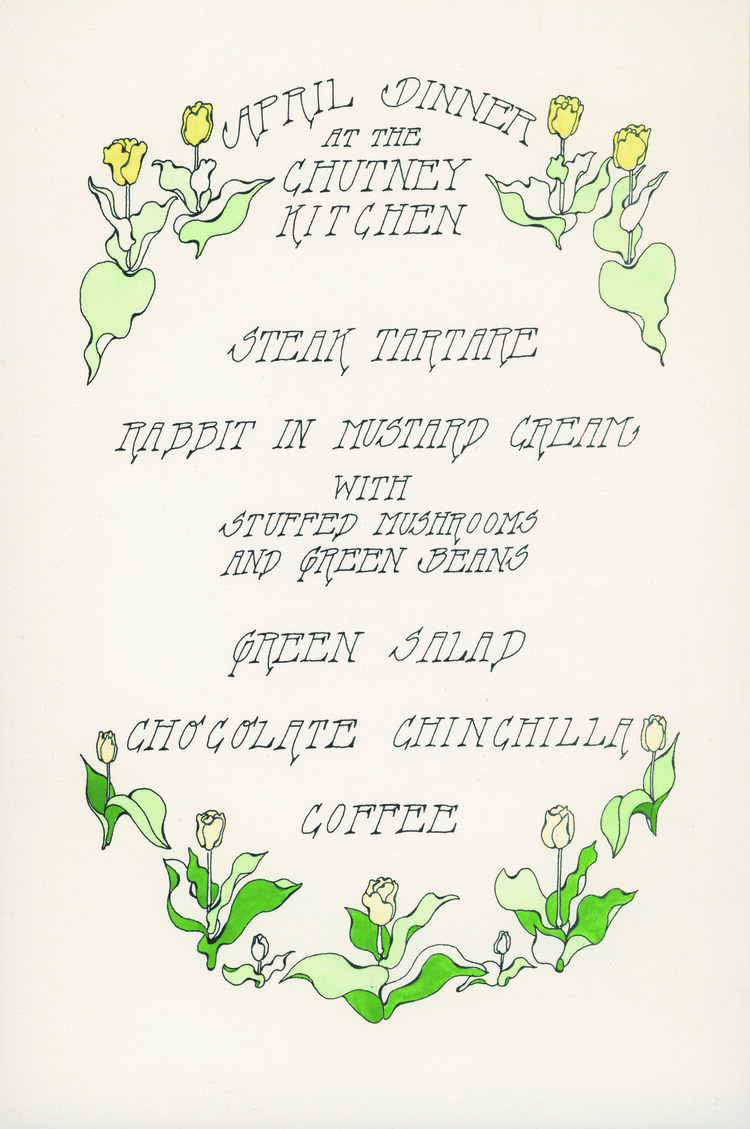 APRIL DINNER
AT THE
CHUTNEY
KITCHEN
STEAK TARTARE
RABBIT IN MUSTARD CREAM
WITH
STUFFED MUSHROOMS
AND GREEN BEANS
GREEN SALAD
CHOCOLATE CHINCHILLA
COFFEE